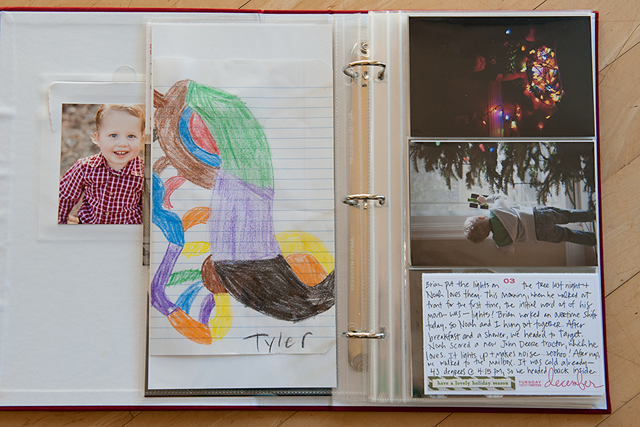 Tyler
03
Brian put the lights on the tree last night +
Noah loves them. This morning, when he walked out
front for the first time, the initial word out of his
mouth was — lights! Brian worked an overtime shift
today, so Noah and I hung out together. After
breakfast and a shower, we headed to Target.
Noah scored a new John Deere tractor, which he
loves. It lights up + makes noise. woohoo! After nap,
we walked to the mailbox. It was cold already —
43 degrees @ 4:15 pm, so we headed back inside.
have a lovely holiday season
TUESDAY
december